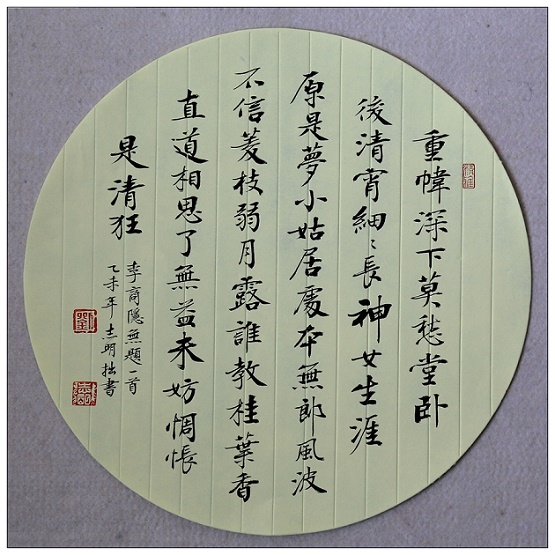 重幃深下莫愁堂卧
後清宵細〻長神女生涯
原是夢小姑居處本無郎風波
不信菱枝弱月露誰教桂葉香
直道相思了無益未妨惆悵
是清狂
李商隱無題一首
乙未年志明拙書
劉